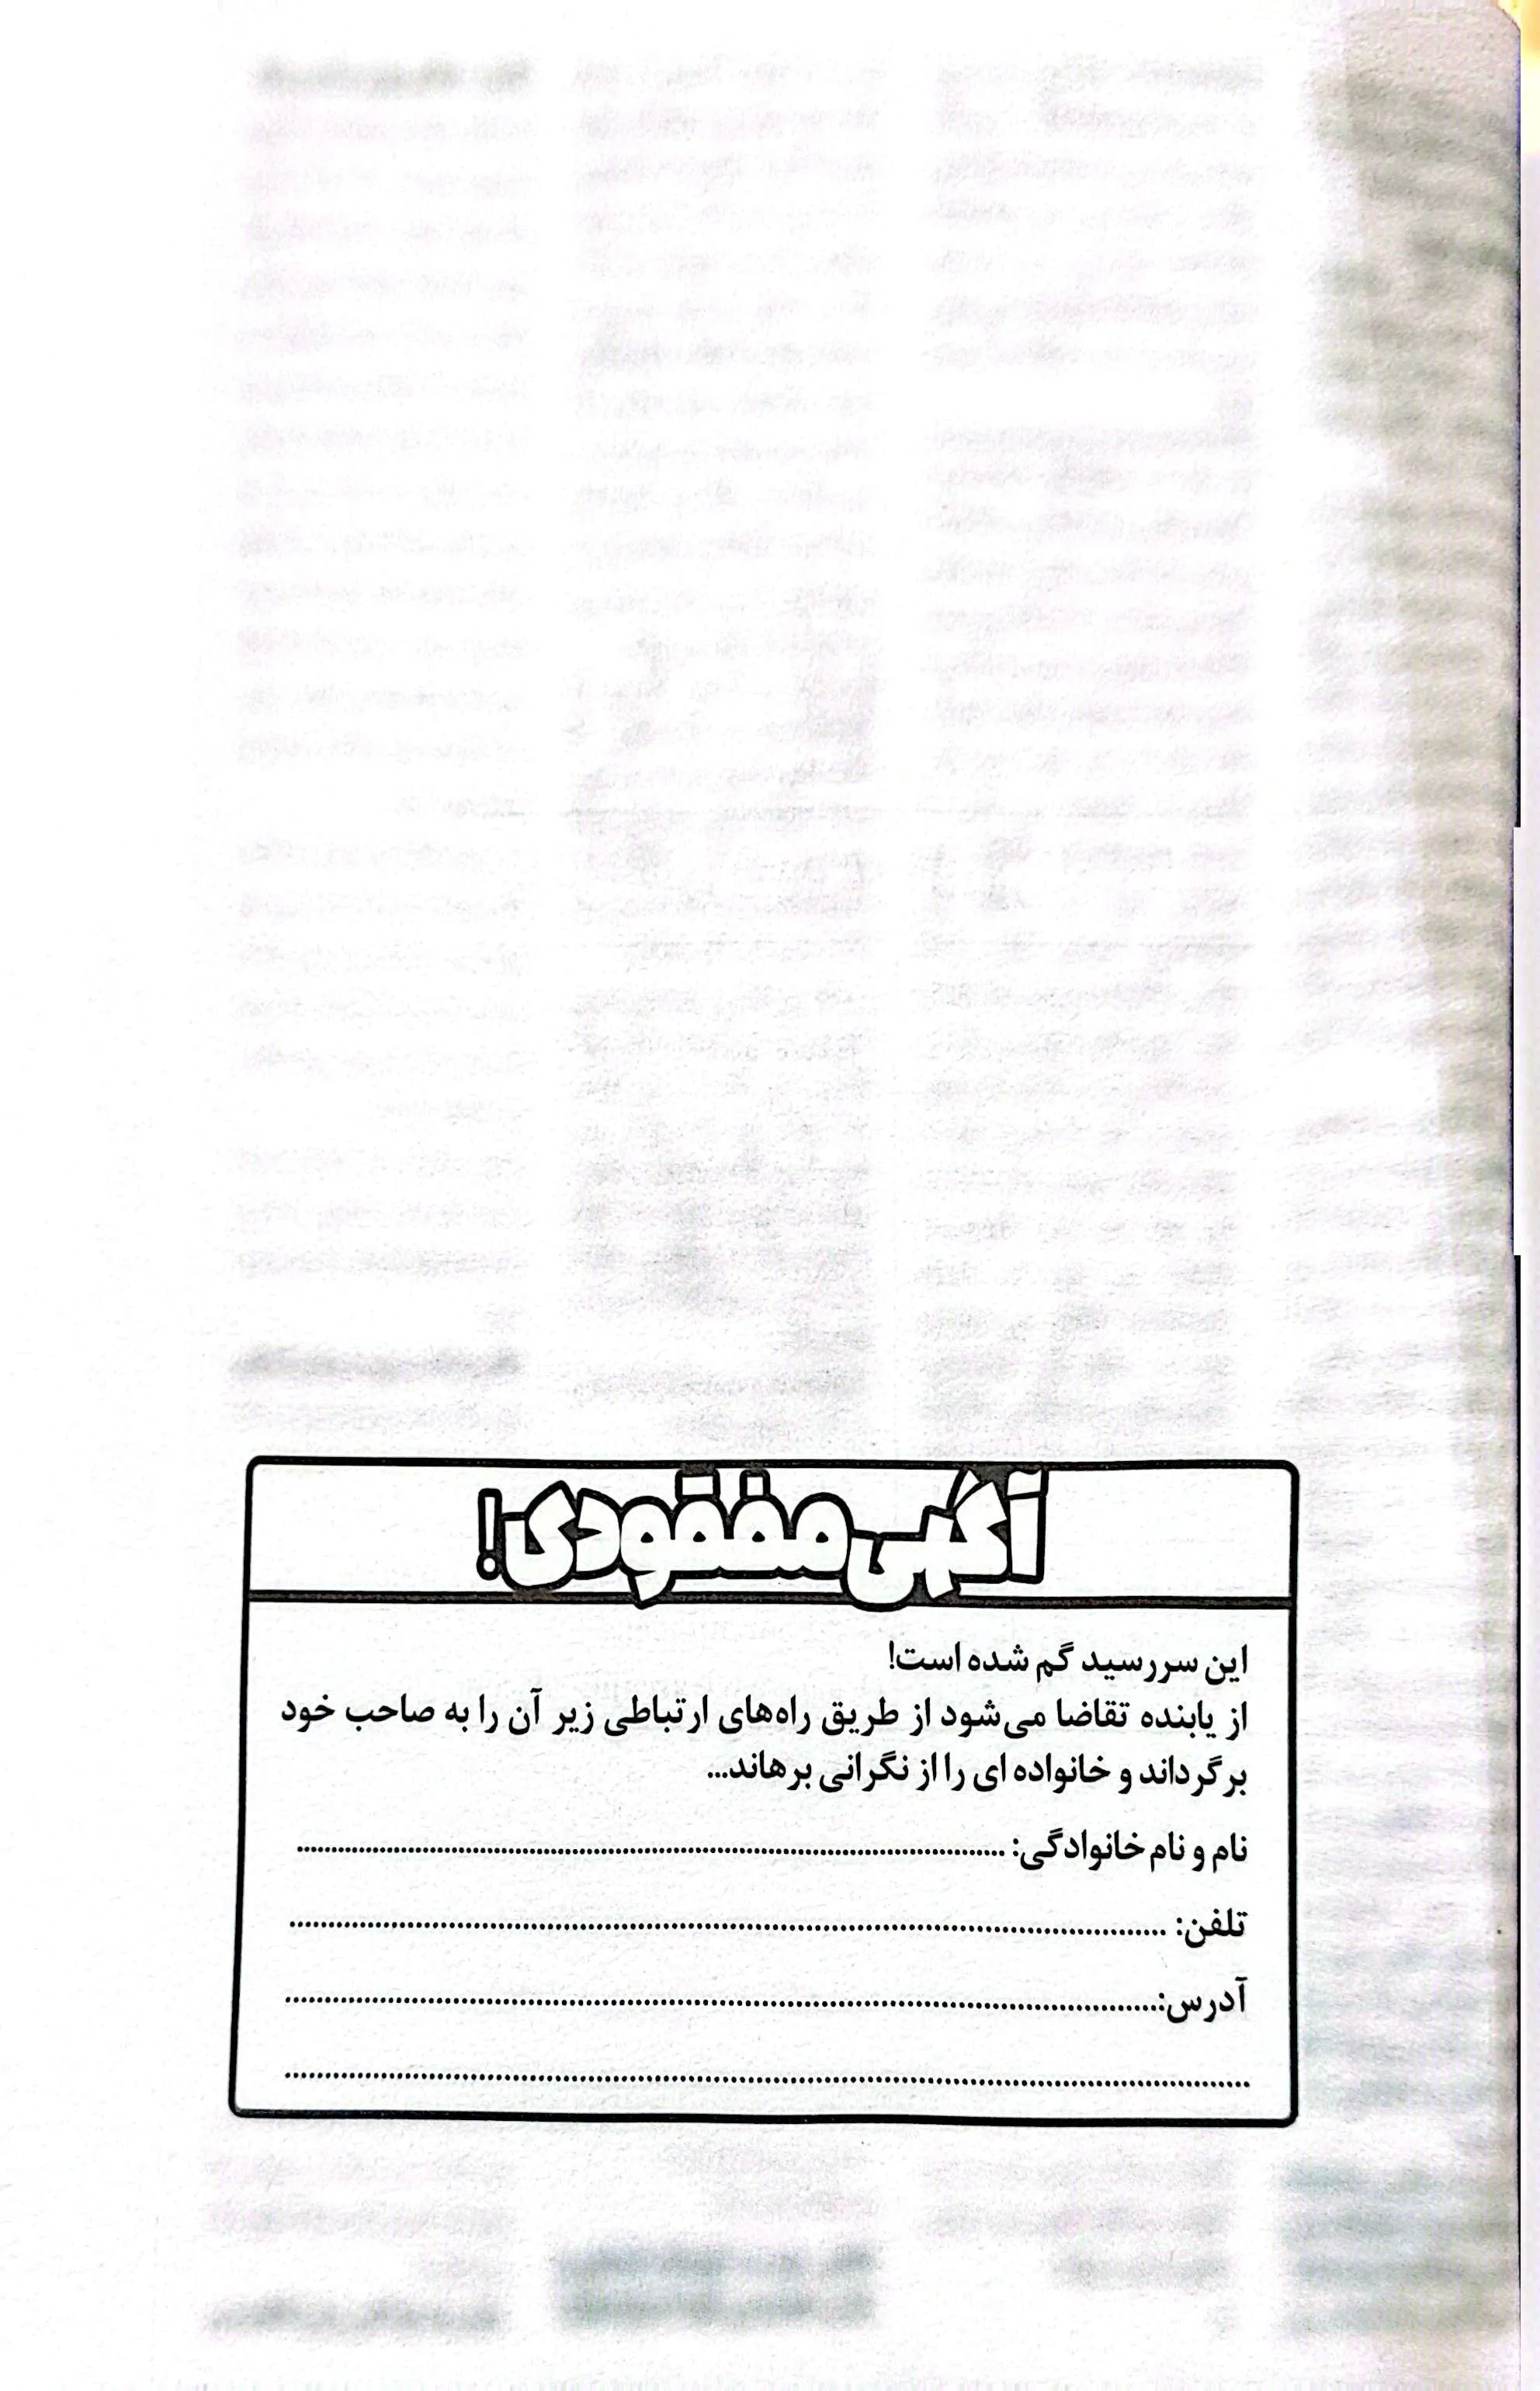 آگهی مفقودی!
این سررسید گم شده است!
از یابنده تقاضا می‌شود از طریق راه‌های ارتباطی زیر آن را به صاحب خود
برگرداند و خانواده ای را از نگرانی برهاند...
نام و نام خانوادگی: ........................................................................
تلفن: ........................................................................
آدرس:........................................................................
........................................................................